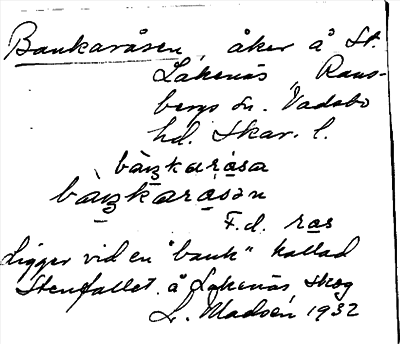 Bankaråsen, åker å St.
Lakenäs, Rans-
bergs sn. Vadsbo
hd. Skar. l.
bàŋkaråsa
bàŋkaråsən
F.d. ras
ligger vid en "bank" kallad
Stenfallet å Lakenäs skog
L. Madsén 1932